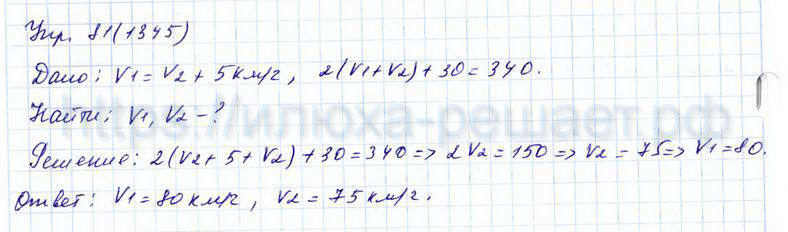 Упр. 81(1345)
Дано: V1 = V2 + 5 км/г, 2(V1+V2)+30=340.
Найти: V1, V2 - ?
Решение: 2(V2+5+V2)+30=340=>2V2=150=>V2=75=>V1=80.
Ответ: V1=80 км/г, V2=75 км/г.
https://илюха-решает.рф